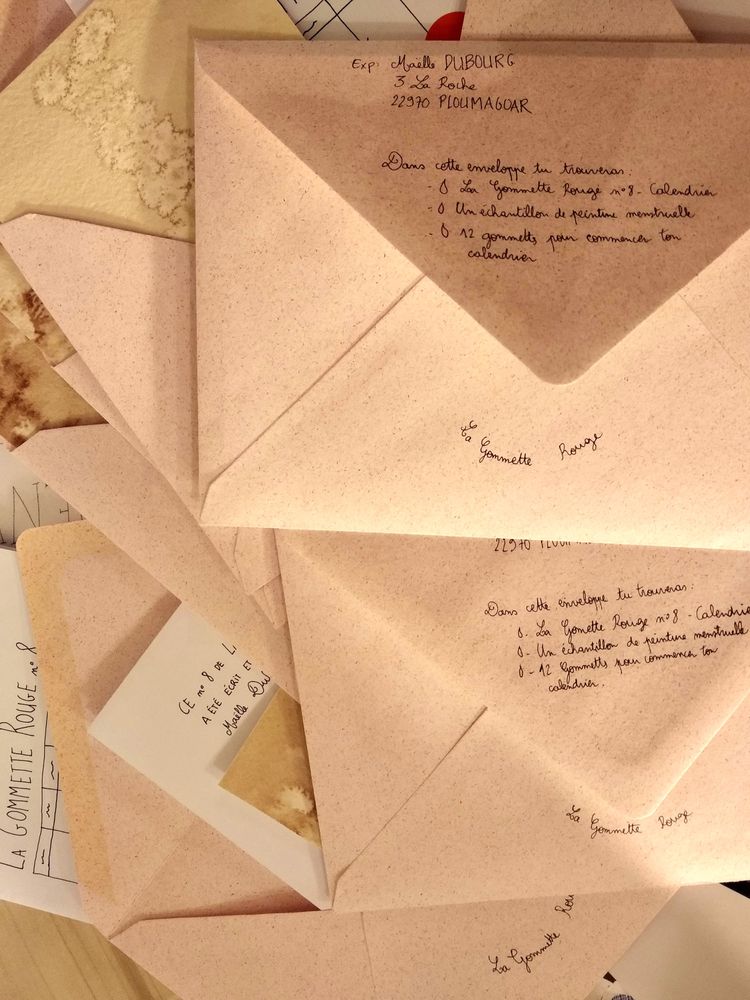 Exp: Maëlle DUBOURG
3 La Roche
22970 PLOUMAGOAR
Dans cette enveloppe tu trouveras:
- 0 La Gommette Rouge n°8 - Calendrier
- 0 Un échantillon de peinture menstruelle
- 0 12 gommetts pour commencer ton
calendrier
La Gommette Rouge
22970
Dans cette enveloppe tu trouveras:
0- La Gomette Rouge n°8 - Calendrie
0- Un échantillon de peinture menstruelle
0- 12 Gommetts pour commencer ton
calendrier.
La Gommette Rouge
CE n°8 DE L
A ÉTÉ ÉCRIT ET
Maëlle Du
LA GOMMETTE ROUGE n°8
La Gommette Rou